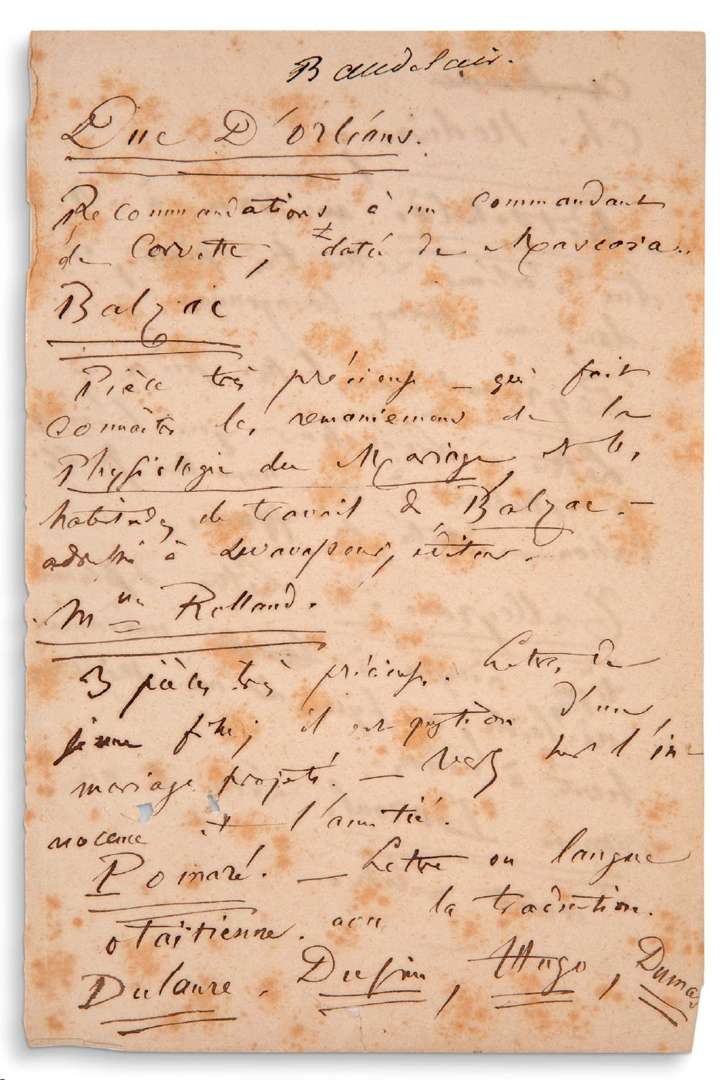 Baudelaire.
Duc D'orléans.
Recommandations à un commandant
de Corvette, datée de Mascara.
Balzac
Pièce très précieuse – qui fait
connaître les remaniemens de la
Physiologie du Mariage, et les
habitudes de travail de Balzac. –
adressé à Levavasseur, éditeur.
Mme Rolland.
3 pièces très précieuses. Lettres de
jeune fille; il est question d'un
mariage projeté. – Vers sur l'in-
nocence et l'amitié.
Pomaré. – Lettre en langue
otaïtienne. avec la traduction.
Dulaure. Dupin, Hugo, Dumas